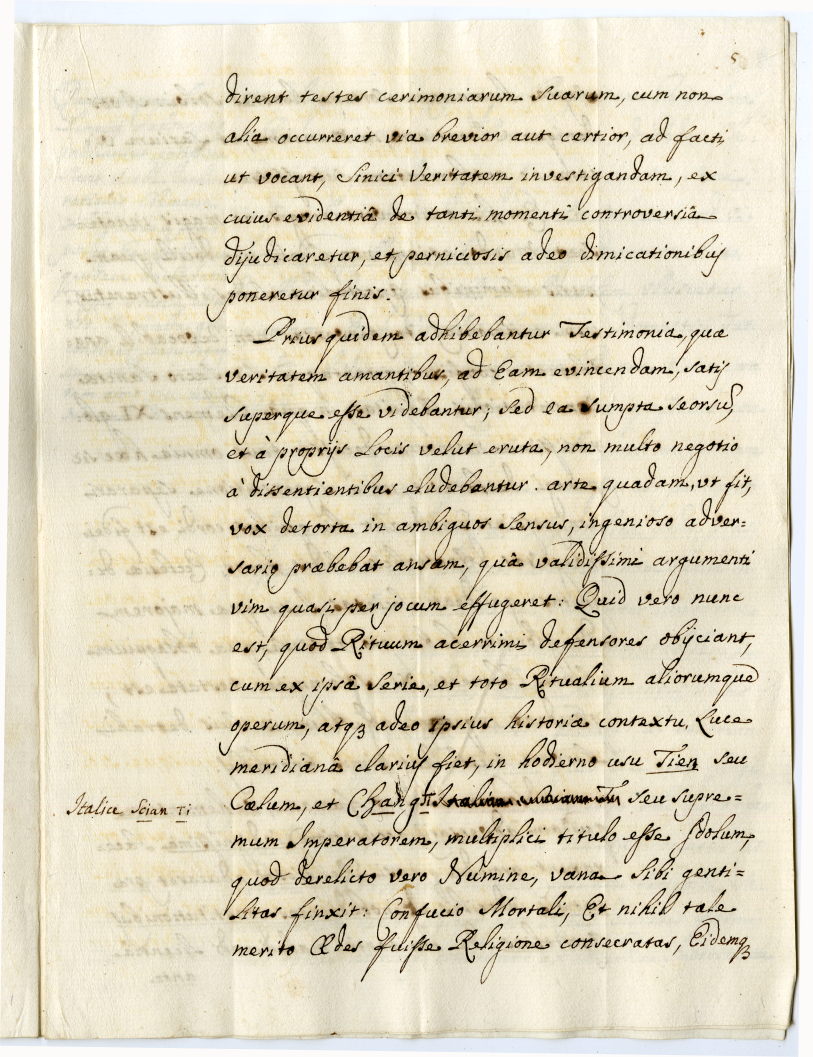 5
dirent testes cerimoniarum suarum, cum non
alia occurreret via brevior aut certior, ad facti
ut vocant, Sinici Veritatem investigandam, ex
cuius evidentiâ de tanti momenti controversia
dijudicaretur, et perniciosis adeo dimicationibus
poneretur finis.
Prius quidem adhibebantur Testimonia, quæ
veritatem amantibus, ad Eam evincendam, satis
superque esse videbantur; sed ea sumpta seorsũ,
et à proprijs Locis velut eruta, non multo negotio
à dissentientibus eludebantur. arte quadam, vt fit,
vox detorta in ambiguos sensus, ingenioso adver=
sario præbebat ansam, quâ validissimi argumenti
vim quasi per jocum effugeret: Quid vero nunc
est, quod Rituum acerrimi defensores obijciant,
cum ex ipsâ serie, et toto Ritualium aliorumque
operum, atqꝫ adeo ipsius historiæ contextu, Luce
meridianâ clarius fiet, in hodierno usu Tien seu
Cælum, et Chang Ti seu supre=
Italice Scian Ti
mum Imperatorem, multiplici titulo esse Idolum,
quod derelicto vero Numine, vana sibi genti=
litas finxit: Confucio Mortali, Et nihil tale
merito Ædes fuisse Religione consecratas, Eidemqꝫ